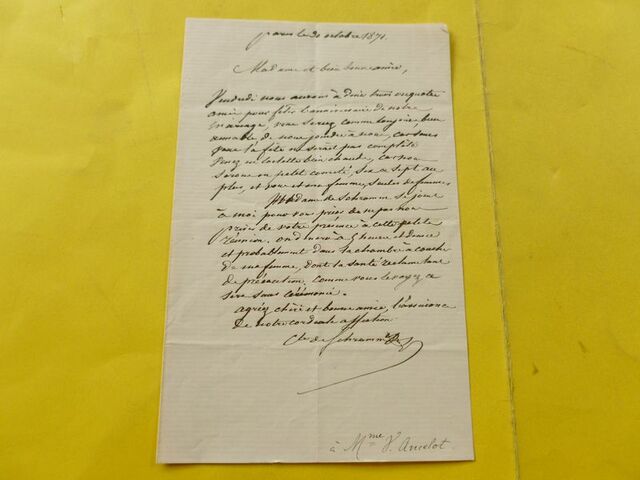 paris le 30 octobre 1871.
Madame et bien bonne amie,
Vendredi nous aurons à diner trois ou quatre
amis pour fêter l'anniversaire de notre
mariage, vous seriez comme toujours bien
aimable de vous joindre à nous, car sans
vous la fête ne serait pas complète
Venez en toilette bien chaude, car nous
serons en petit comité, six a sept au
plus, et vous et ma femme, seules de femmes
Madame de Schramm se joint
à moi pour vous prier de ne pas nous
priver de votre présence à cette petite
réunion, on dinera à 6 heures et demie
et probablement dans la chambre à coucher
de ma femme, dont la santé réclame tant
de précaution, comme vous le voyez ce
sera sans cérémonie.
agréez chère et bonne amie, l'assurance
de notre cordiale affection
Cte de Schramm
à Mme V. Ancelot.